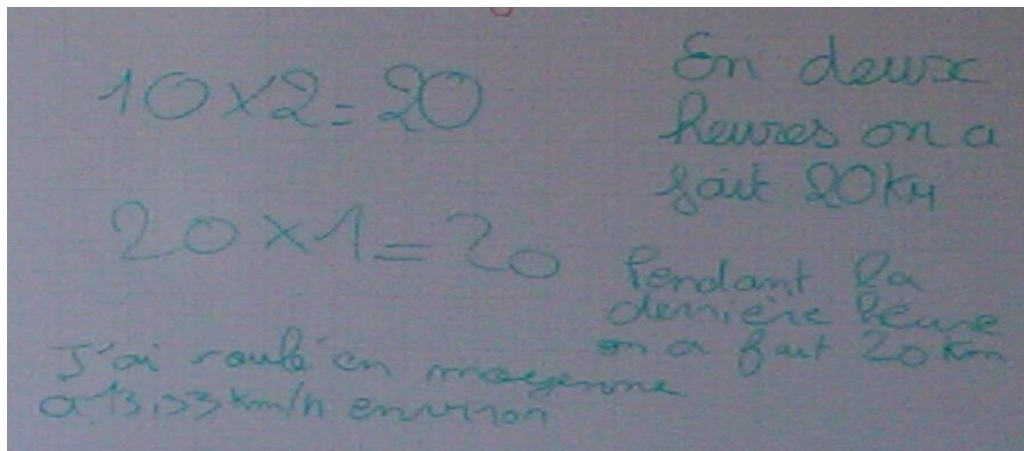 10×2=20
En deux
heures on a
fait 20KM
20×1=20
Pendant la
dernière heure
on a fait 20 Km
J'ai roulé en moyenne
a 13,33 km/h environ